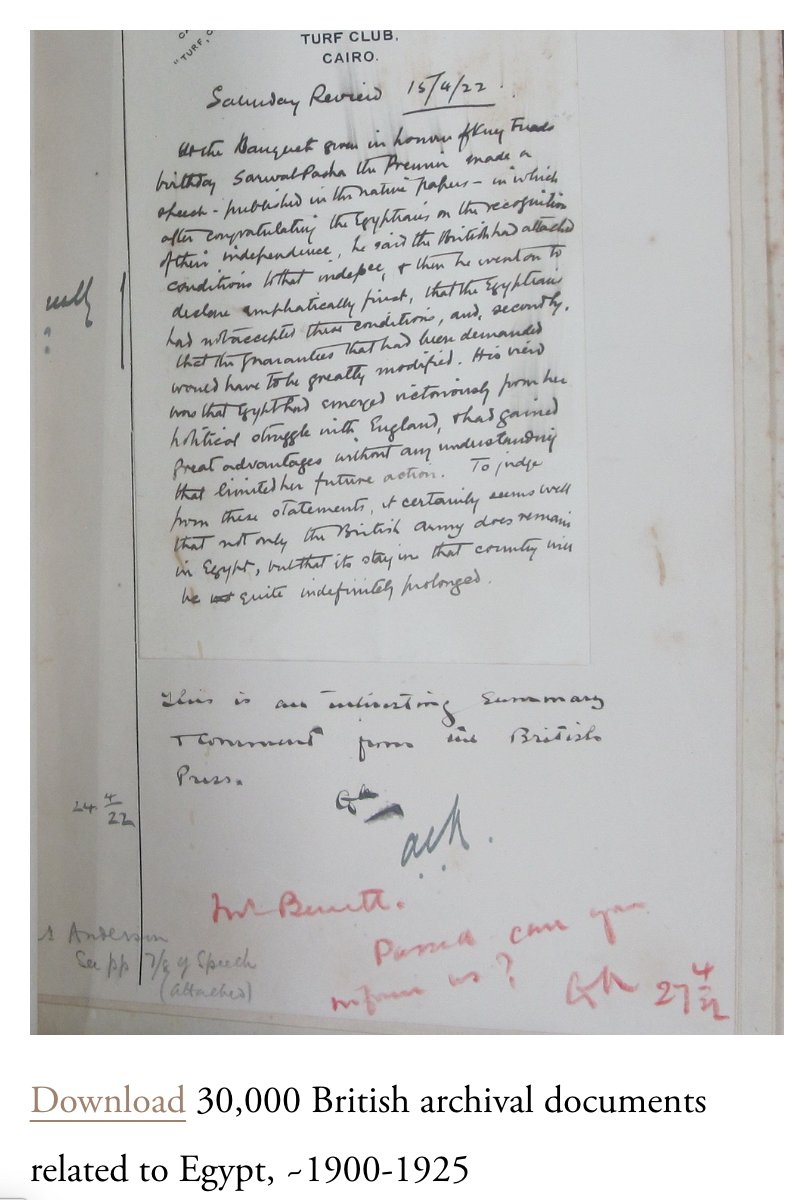 "TURF, C
TURF CLUB,
CAIRO.
Saturday Review 15/4/22.
At the Banquet given in honour of King Fuads
birthday Sarwat Pasha the Premier made a
speech - published in the native papers - in which
after congratulating the Egyptians on the recognition
of their independence, he said the British had attached
conditions to that indepce, & then he went on to
declare emphatically first, that the Egyptians
had not accepted these conditions, and, secondly,
that the guarantees that had been demanded
would have to be greatly modified. His view
was that Egypt had emerged victoriously from her
political struggle with England, & had gained
great advantages without any understanding
that limited her future action. To judge
from these statements, it certainly seems well
that not only the British Army does remain
in Egypt, but that its stay in that country will
be quite indefinitely prolonged.
This is an interesting Summary
& Comment from the British
Press.
24 4/22
Mr Bennett.
can you
inform us?
27 4/22
Anderson
See pp 7/8 of Speech
(attached)
Download 30,000 British archival documents
related to Egypt, ~1900-1925